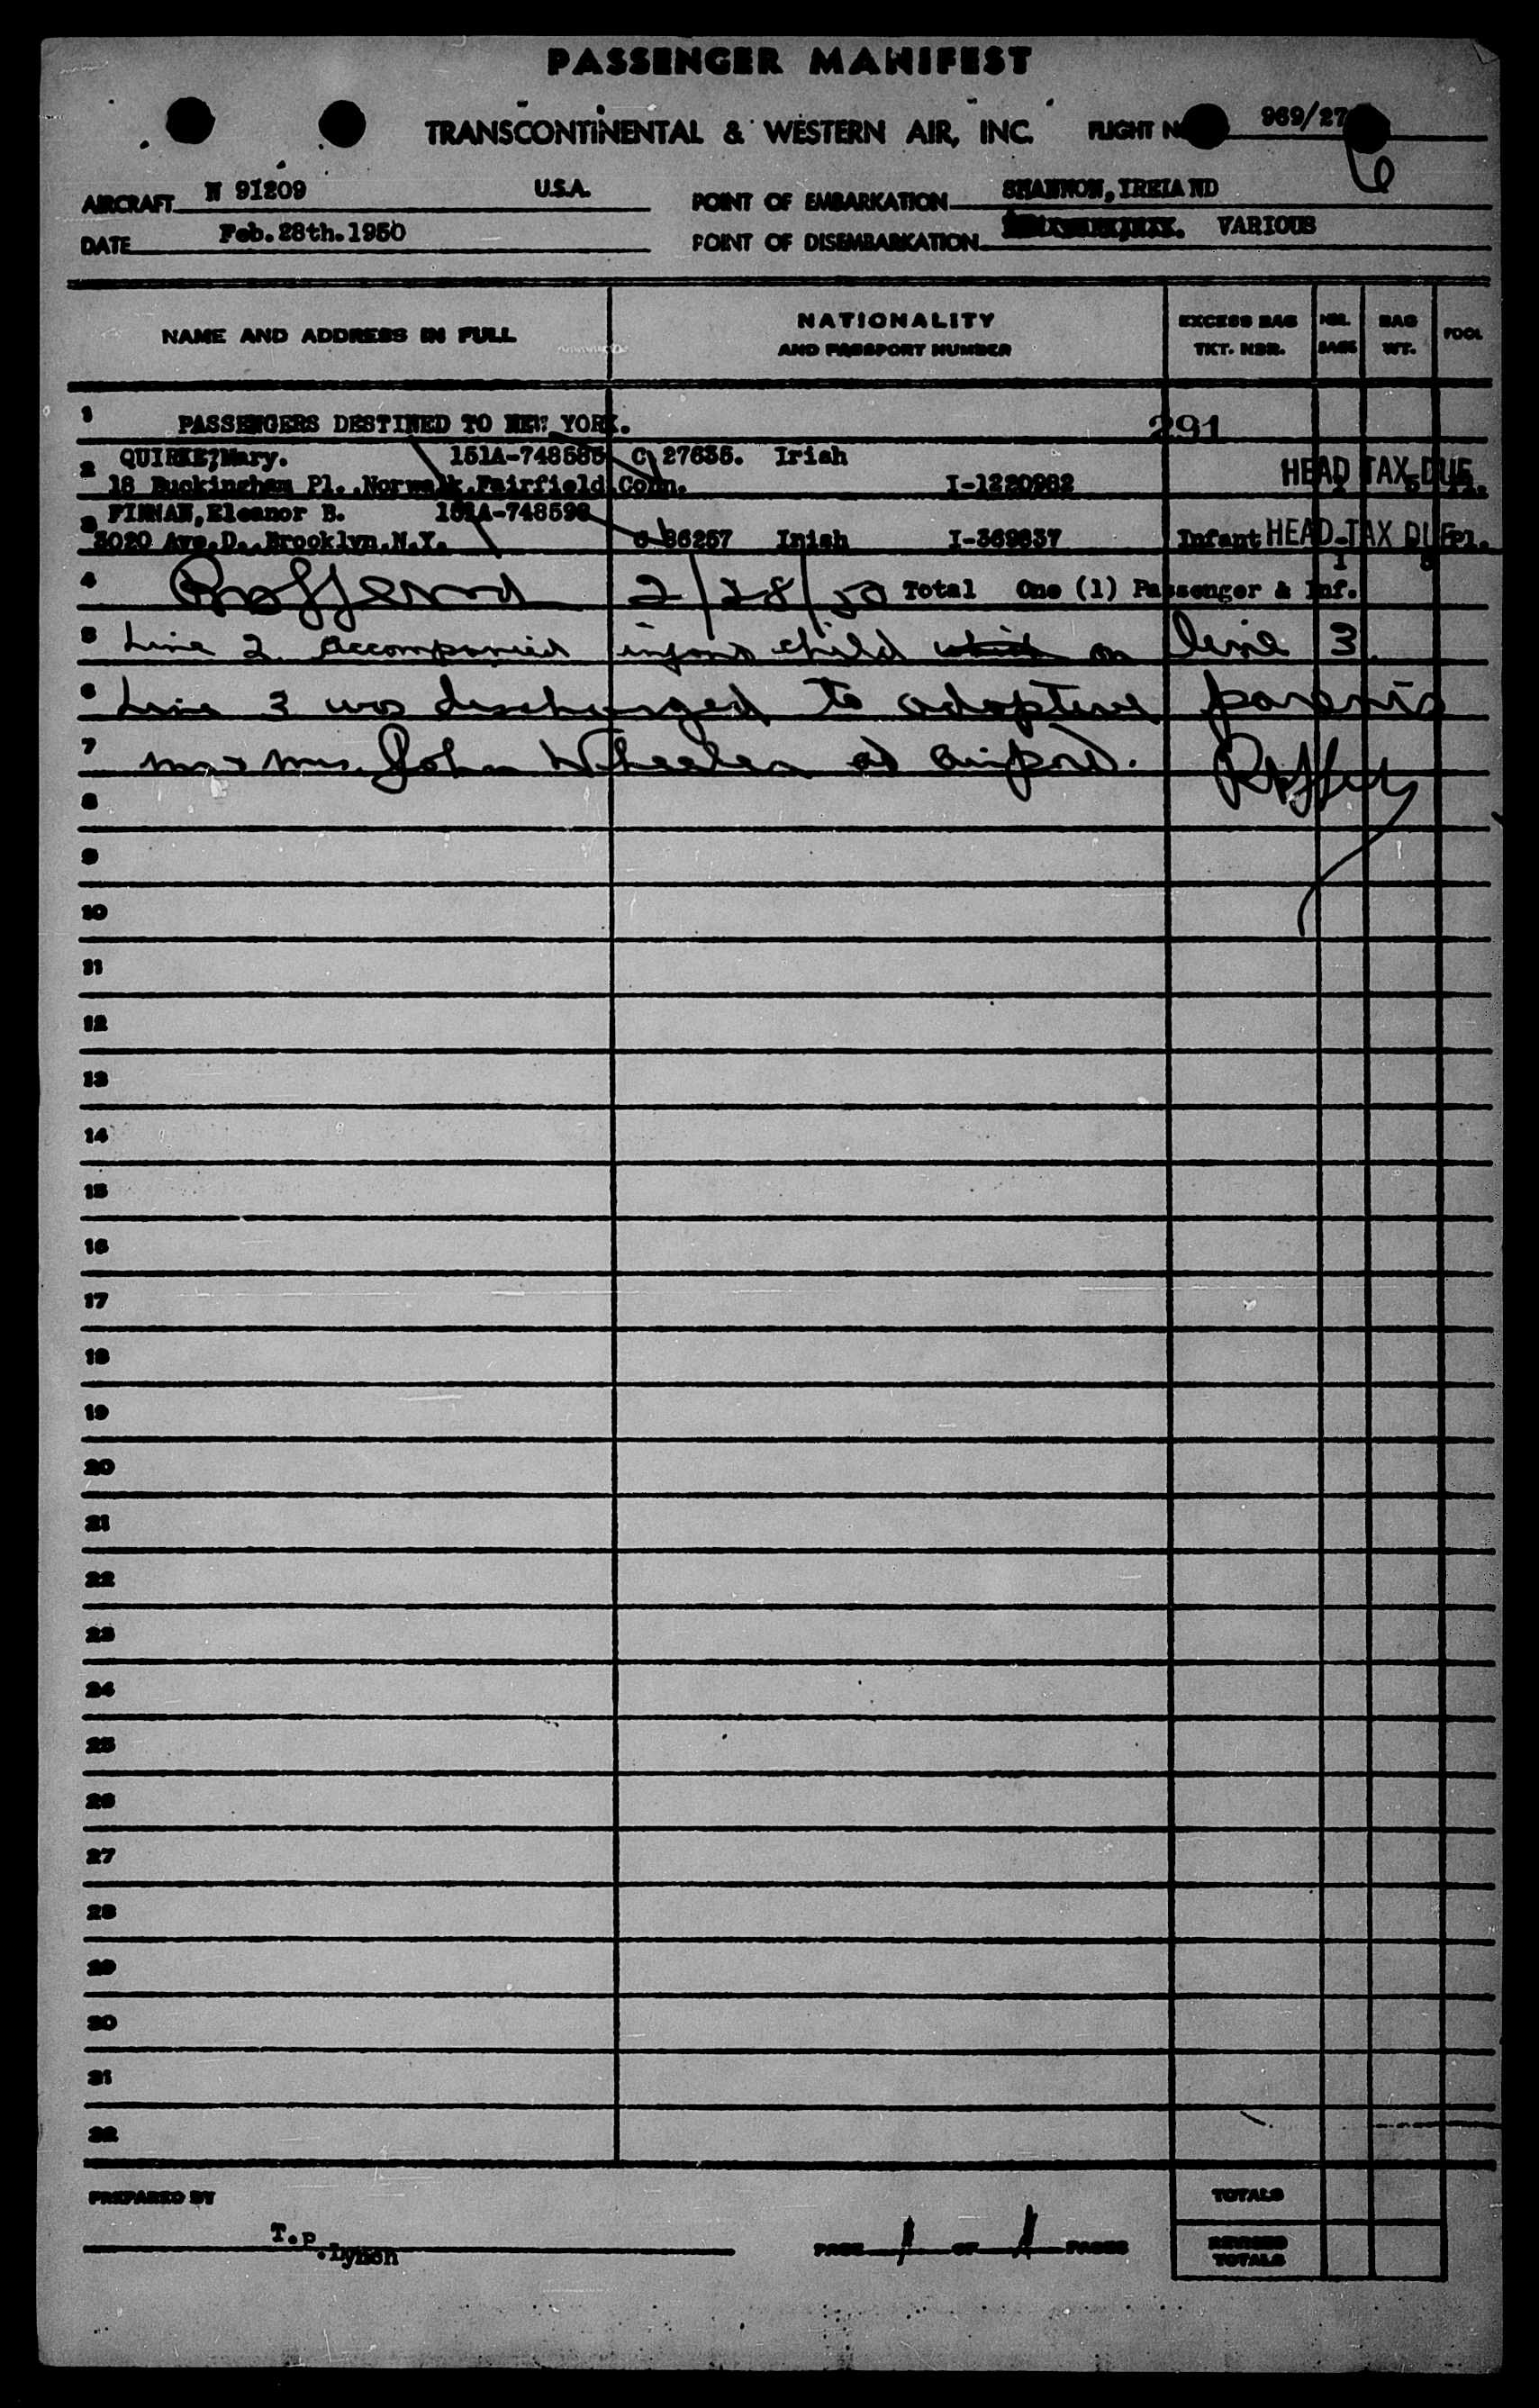 PASSENGER MANIFEST
TRANSCONTINENTAL & WESTERN AIR, INC. FLIGHT N 969/27
6
AIRCRAFT N 91209 U.S.A. POINT OF EMBARKATION SHANNON, IRELAND
DATE Feb.28th.1950 POINT OF DISEMBARKATION VARIOUS
NAME AND ADDRESS IN FULL NATIONALITY AND PASSPORT NUMBER EXCESS BAG TKT. NBR. NBR. BAGS BAG WT. POOL
1 PASSENGERS DESTINED TO NEW YORK. 291
2 QUIRKE, Mary. 151A-748585 C 27635. Irish
18 Buckingham Pl., Norwalk, Fairfield, Conn. I-1220982 HEAD TAX DUE
3 FINNAN, Eleanor B. 151A-748598
3020 Ave.D., Brooklyn, N.Y. 86257 Irish I-369837 Infant HEAD TAX DUE Pl.
4 2/28/50 Total One (1) Passenger & Inf.
5 Line 2 accompanied infant child on line 3
6 Line 3 was discharged to adoptive parents
7 Mr & Mrs. John Wheeler at airport.
8
9
10
11
12
13
14
15
16
17
18
19
20
21
22
23
24
25
26
27
28
29
30
31
32
PREPARED BY T.P. Lynch PAGE 1 OF 1 PAGES
TOTALS
REVISED TOTALS